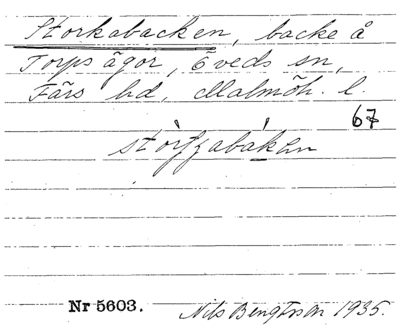 Storkabacken, backe å
Torps ägor, Öveds sn,
Färs hd, Malmöh. l.
67
Nr 5603. Nils Bengtsson 1935.